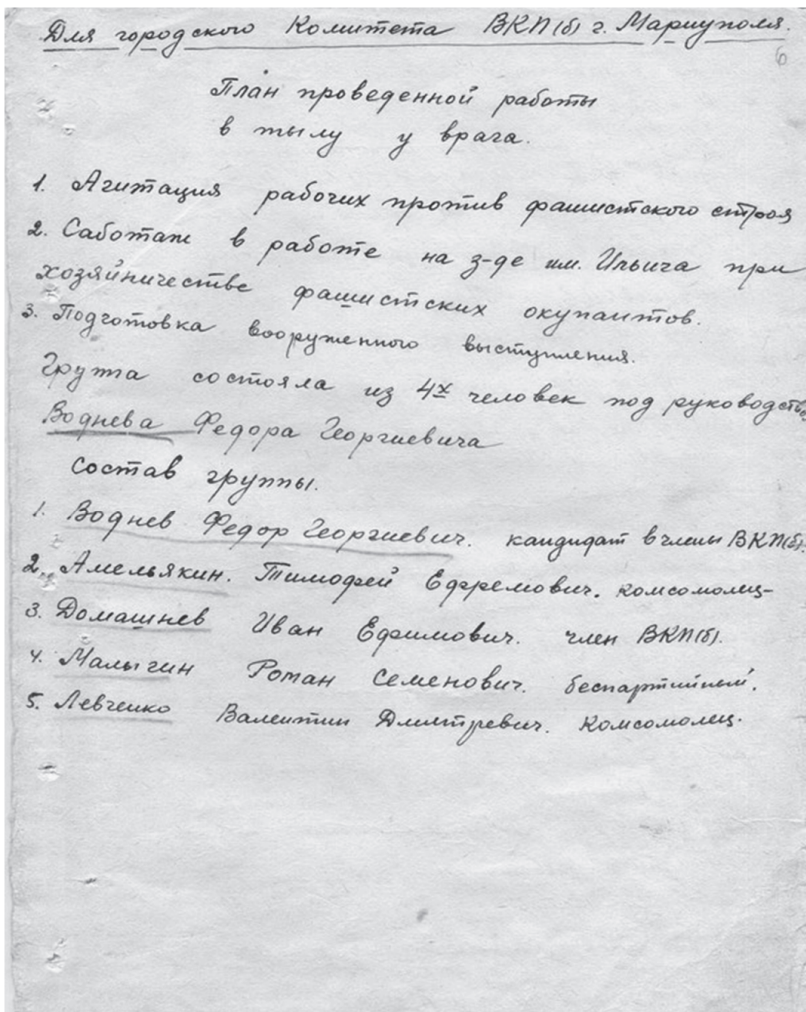 Для городского Комитета ВКП(б) г. Мариуполя.
6
План проведенной работы
в тылу у врага.
1. Агитация рабочих против фашистского строя
2. Саботаж в работе на з-де им. Ильича при
хозяйничестве фашистских окупантов.
3. Подготовка вооруженного выступления.
Группа состояла из 4х человек под руководством
Воднева Федора Георгиевича
Состав группы.
1. Воднев Федор Георгиевич. кандидат в члены ВКП(б).
2. Амельякин. Тимофей Ефремович. комсомолец-
3. Домашнев Иван Ефимович. член ВКП(б).
4. Малыгин Роман Семенович. беспартийный.
5. Левченко Валентин Дмитревич. комсомолец.